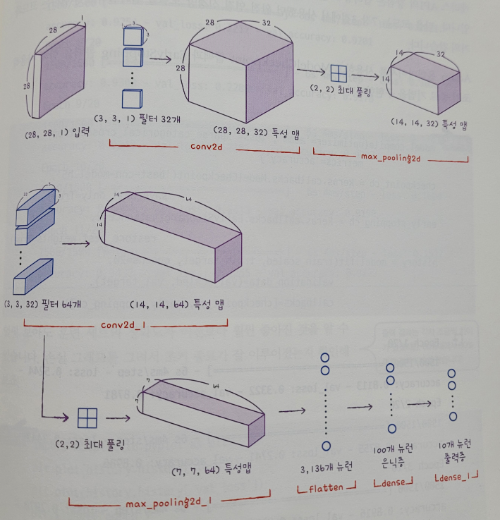 28
1
28
(28, 28, 1) 입력
(3, 3, 1) 필터 32개
28
32
28
(28, 28, 32) 특성 맵
conv2d
(2, 2) 최대 풀링
14
32
14
(14, 14, 32) 특성 맵
max_pooling2d
(3, 3, 32) 필터 64개
14
64
14
(14, 14, 64) 특성 맵
conv2d_1
(2,2) 최대 풀링
7
64
7
(7, 7, 64) 특성맵
max_pooling2d_1
3,136개 뉴런
flatten
100개 뉴런
은닉층
dense
10개 뉴런
출력층
dense_1